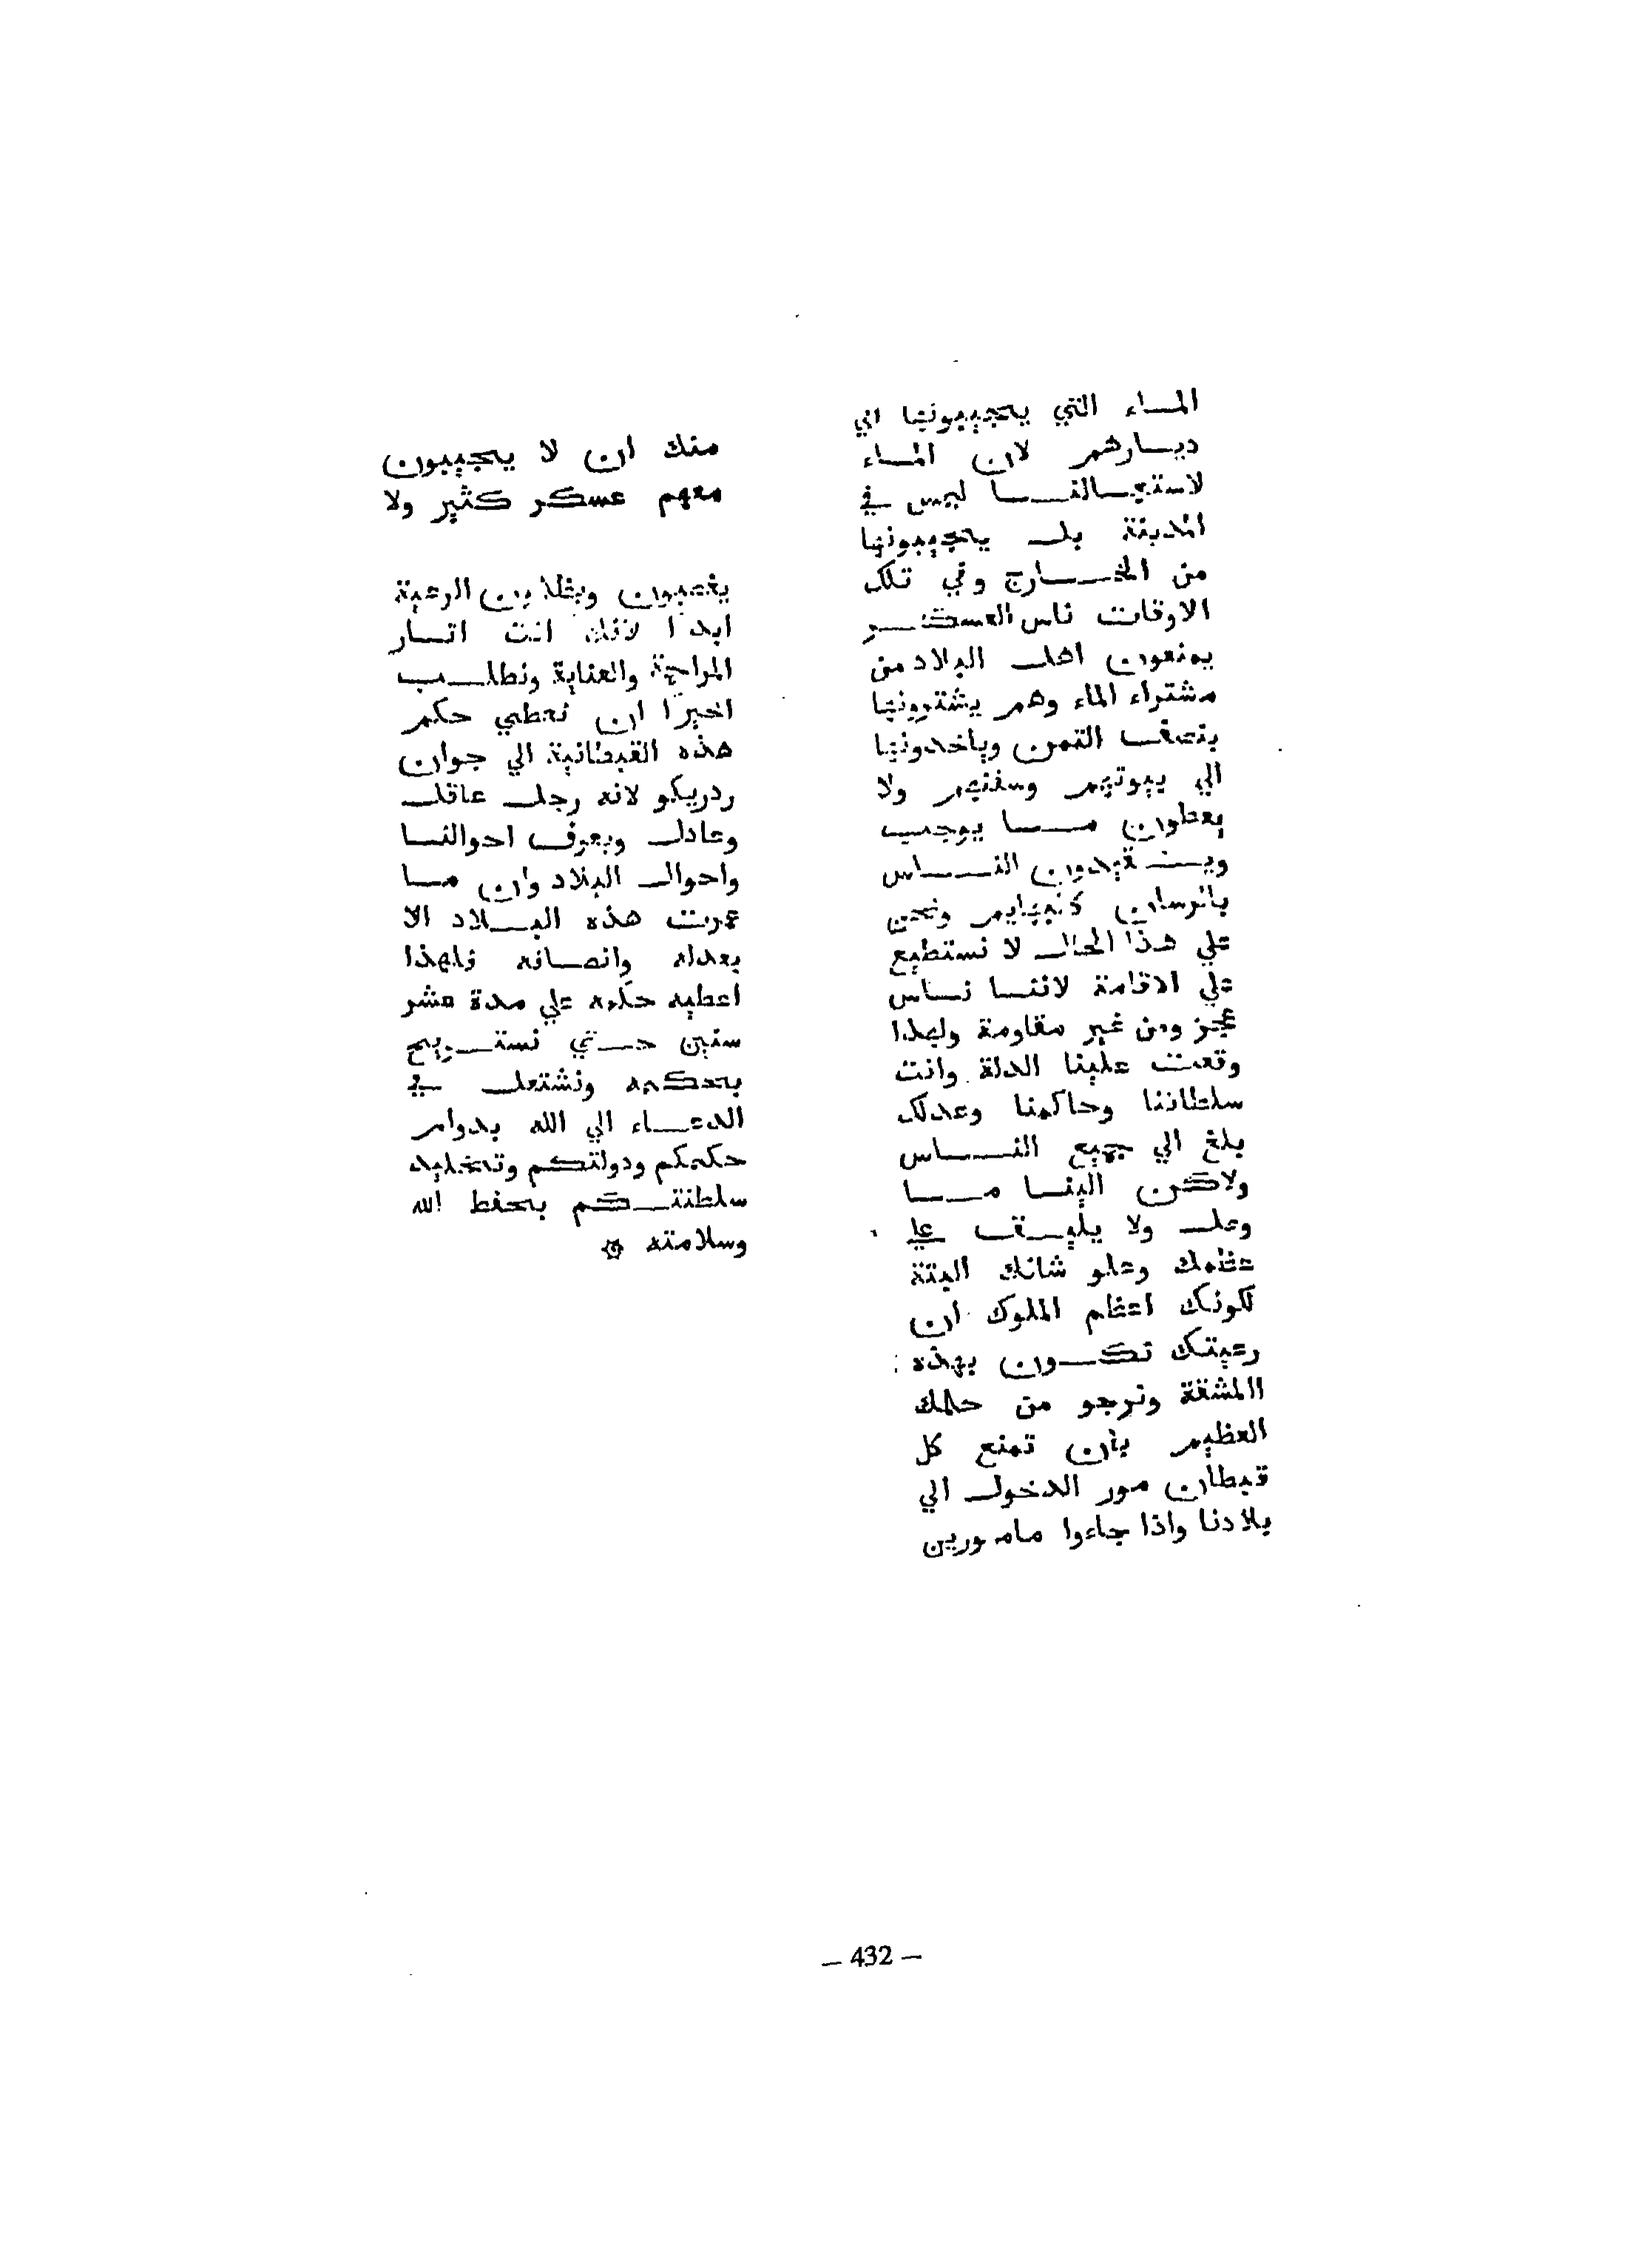 المــاء التي يحجيبونها الي
ديــارهم لان المــاء
لاستعمــالنــا ليس في
المدينة بل يجيبونها
من الخــارج وفي تلك
الاوقات ناس العسكــر
يمنعون اهل البلاد من
مشتراء الماء وهم يشترونها
بنصف الثمن وياخدونها
الي بيوتهم وسفنهم ولا
يعطون مــا يوجب
النــاس
ونحن
علي هذا الحال لا نستطيع
علي الاقامة لاننــا نــاس
عجز ومن غير مقاومة ولهدا
وقعت علينا الدلة وانت
سلطاننا وحاكمنا وعدلك
بلغ الي جميع النــاس
ولاكن الينــا مــا
وصل ولا يليــق علي
عظمك وعلو شانك البتة
لكونك اعظم الملوك ان
رعيتك تكــون بهذه
االمشقة ونرجو من حلمك
العظيم بأن تمنع كل
قبطان مور الدخول الي
بلادنا واذا جاءوا مامورين
منك ان لا يحجيبون
معهم عسكر كثير ولا
يغصبون ويثلابون الرعية
ابدًا لأنك انت
المراحمة والعناية ونطلــب
اخيرًا ان تعطي حكم
هذه القبطانية الي جوان
ردريكو لانه رجل عاقل
وعادل ويعرف احوالنــا
واحوال البلاد وان مــا
عمرت هذه البــلاد الا
بعدله وانصــافه فلهذا
اعطيه حكمه علي مدة عشر
سنين حــتي نستــريح
بحكمه ونشتعل في
الدعــاء الي الله بدوام
حكمكم ودولتكم وتخليد
سلطنتــكم بحفط الله
وسلامته ۞
— 432 —